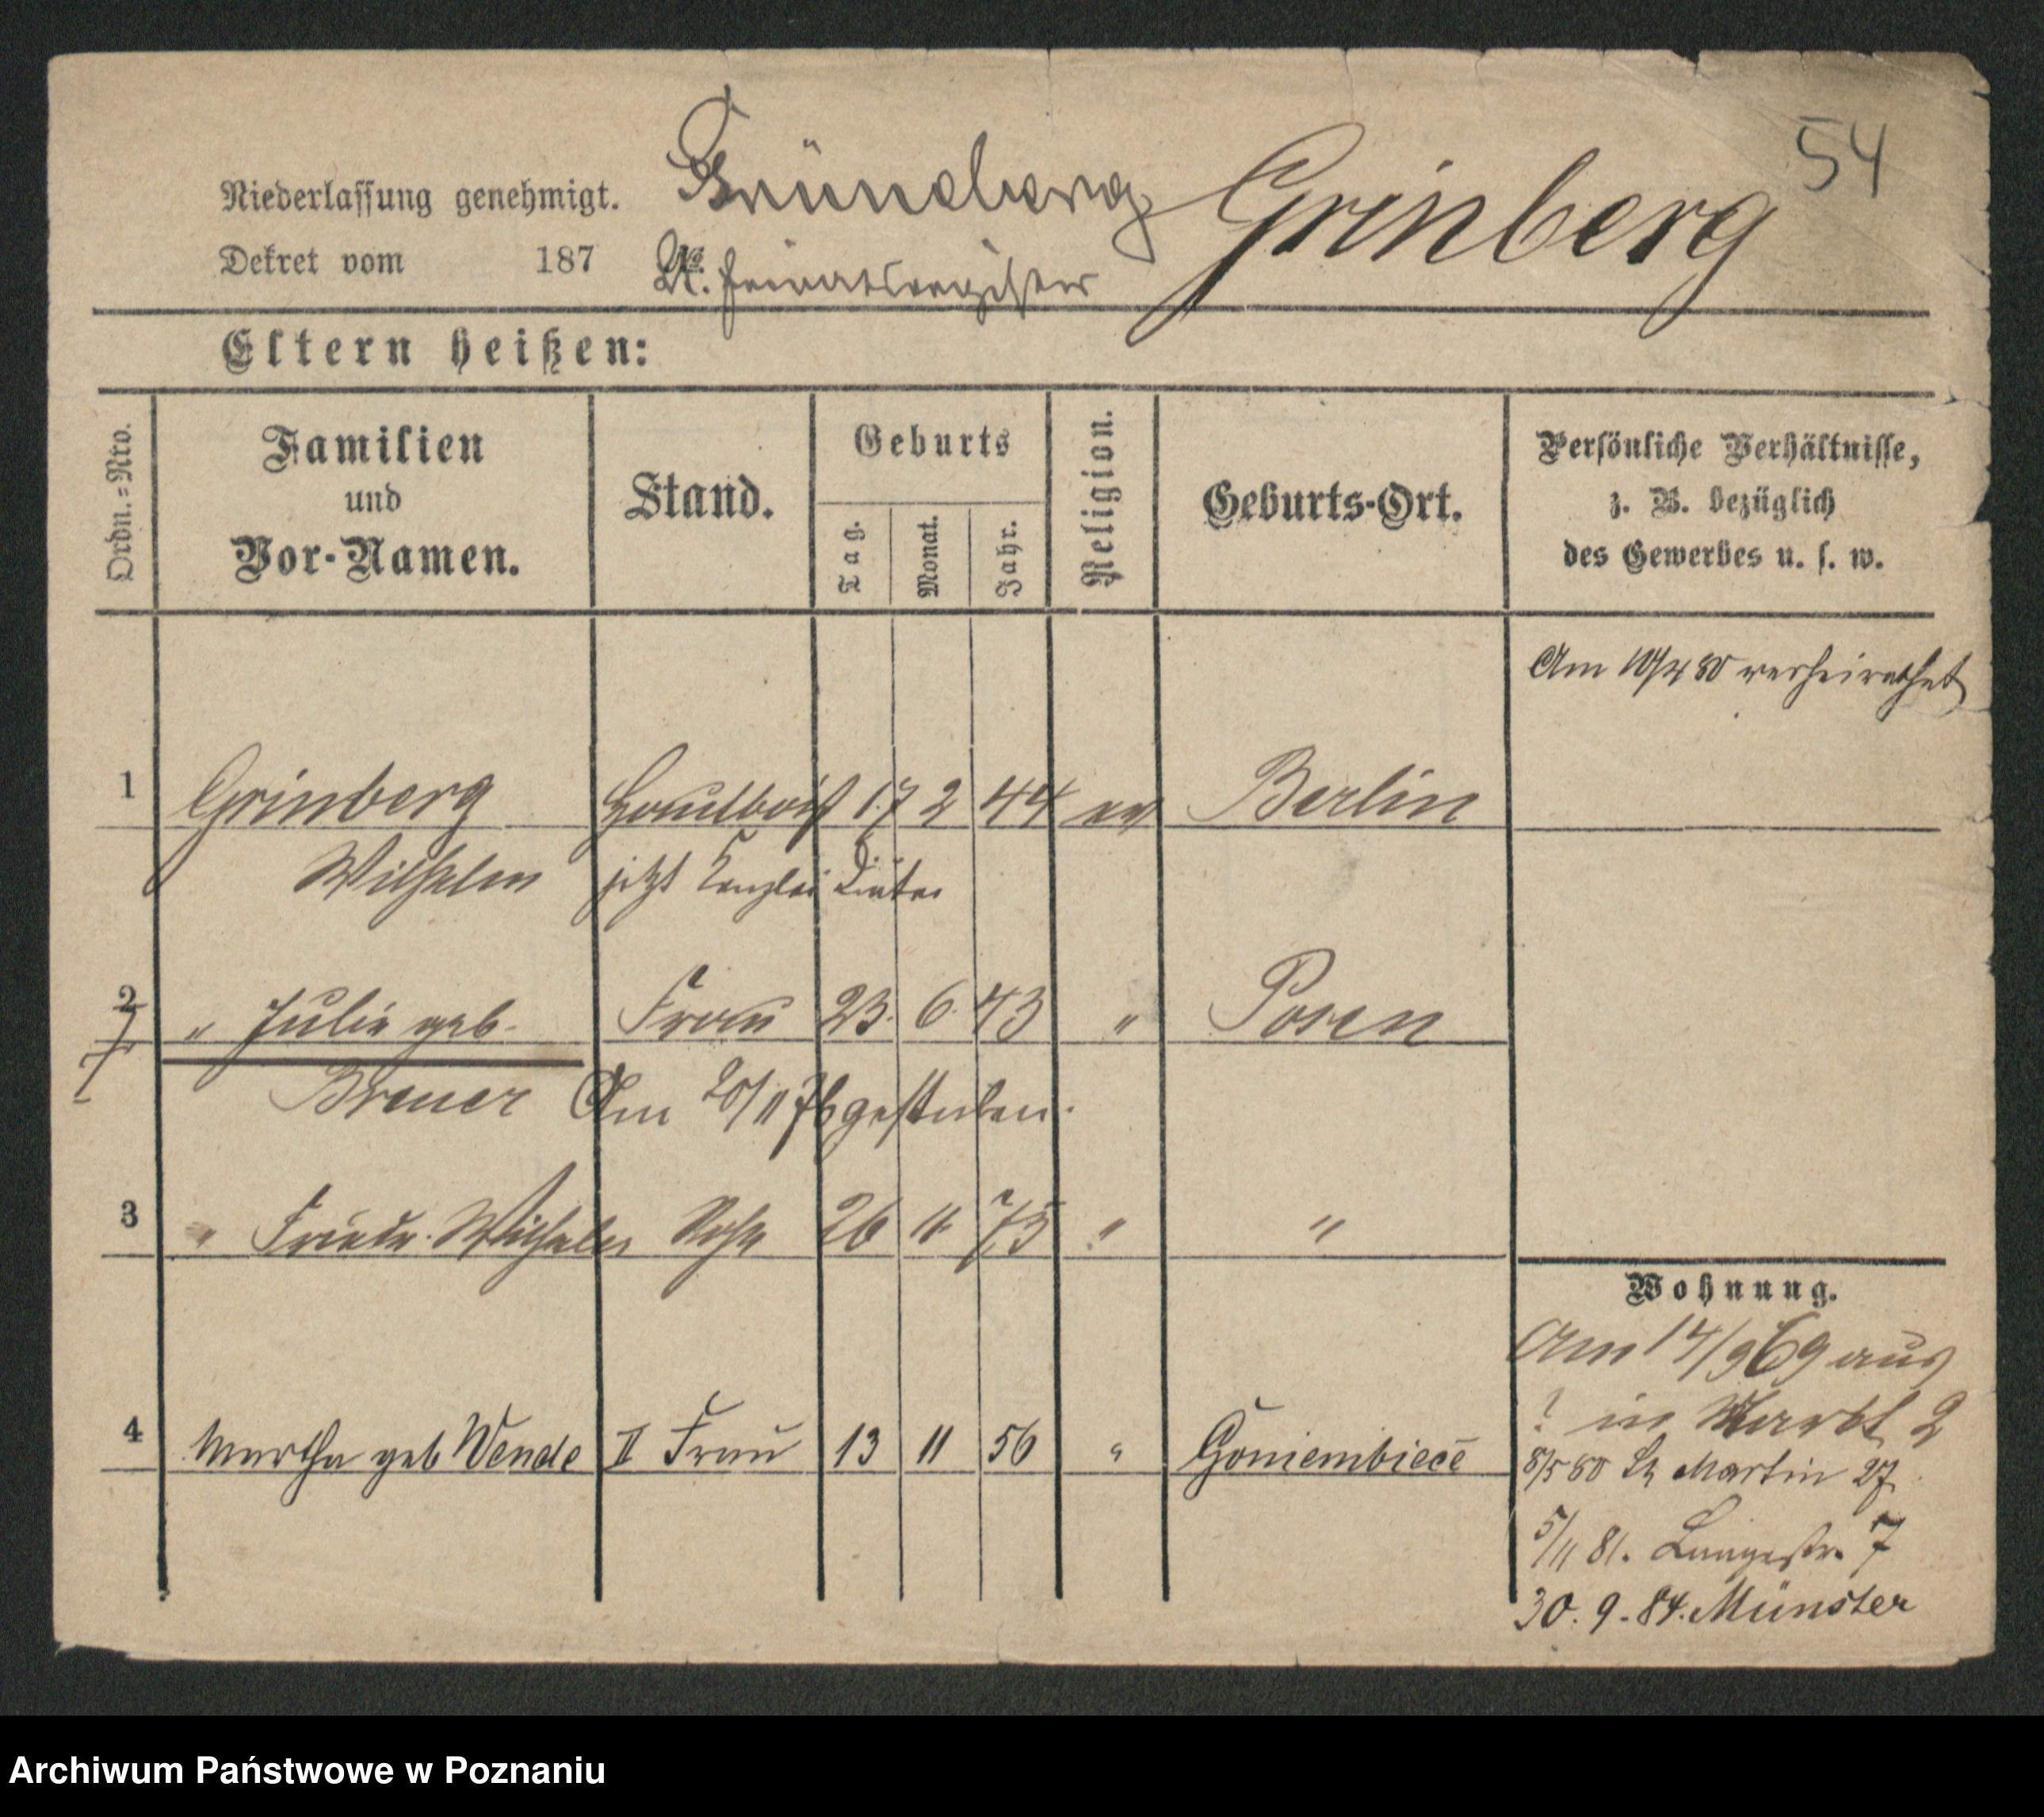 54
Gründberg Grinberg
Niederlassung genehmigt.
Dekret vom 187
Lt. Heiratsregister
Eltern heißen:
Ordn.=Nro.
Familien
und
Vor-Namen.
Stand.
Geburts
Tag.
Monat.
Jahr.
Religion.
Geburts-Ort.
Persönliche Verhältnisse,
z. B. bezüglich
des Gewerbes u. s. w.
Am 10/4 80 verheirathet
1 Grinberg Hautboist 17 2 44 ev Berlin
Wilhelm jetzt Kanzlei Diätar
2 " Julie geb. Frau 23. 6. 43 " Posen
Breuer Am 20/11 76 gestorben.
3 " Friedr. Wilhelm Sohn 26 11 75 " "
Wohnung.
Am 14/9 69 aus
? in Markt 2
4 Martha geb Wende II Frau 13 11 56 " Goniembiece
8/5 80 St Martin 27
5/11 81. Langestr. 7
30. 9. 84. Münster
Archiwum Państwowe w Poznaniu